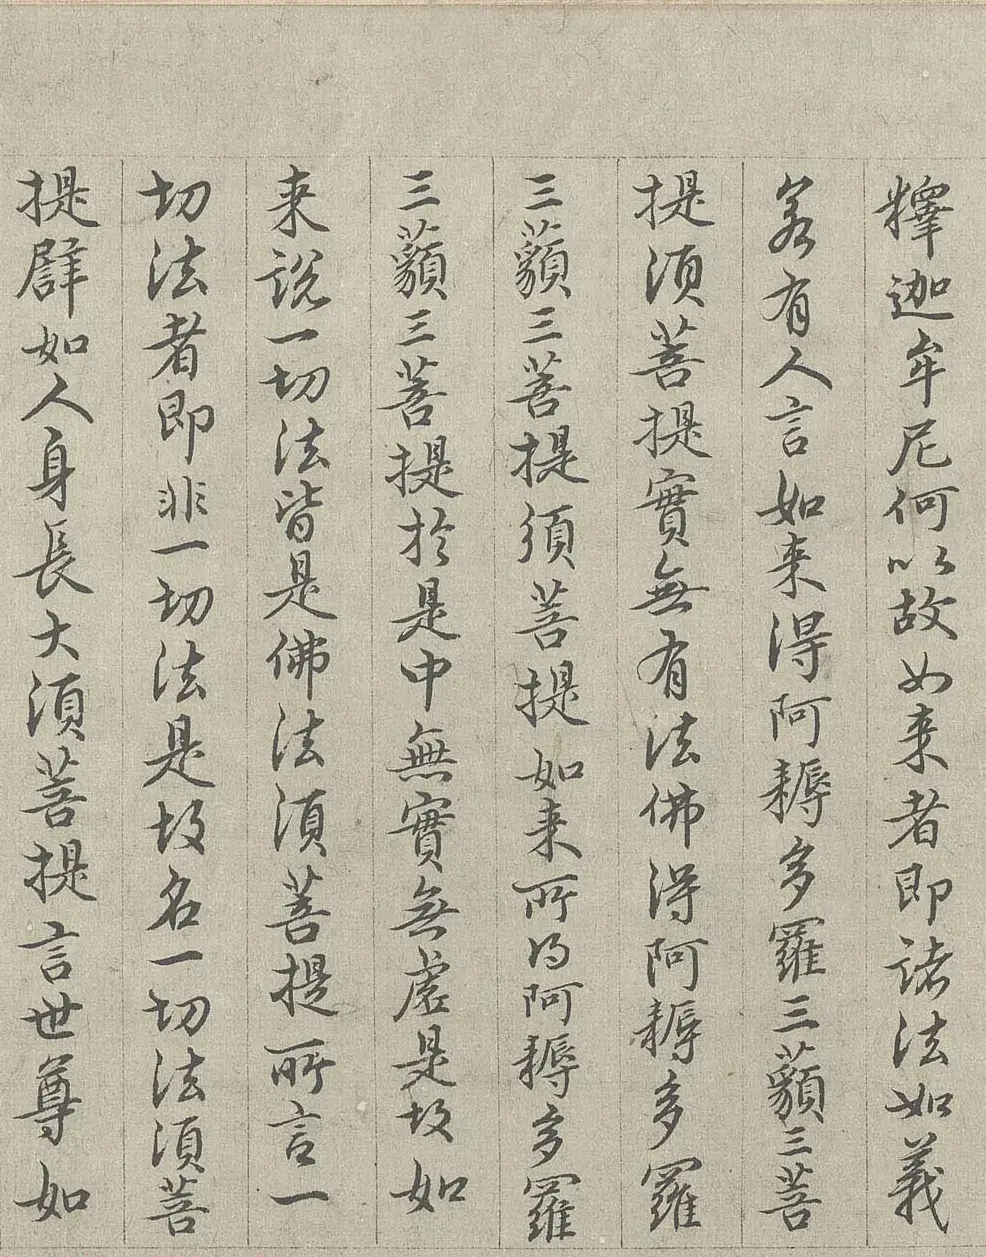 釋迦牟尼何以故如来者即諸法如義
若有人言如来得阿耨多羅三藐三菩
提須菩提實無有法佛得阿耨多羅
三藐三菩提須菩提如来所得阿耨多羅
三藐三菩提於是中無實無虛是故如
来說一切法皆是佛法須菩提所言一
切法者即非一切法是故名一切法須菩
提譬如人身長大須菩提言世尊如